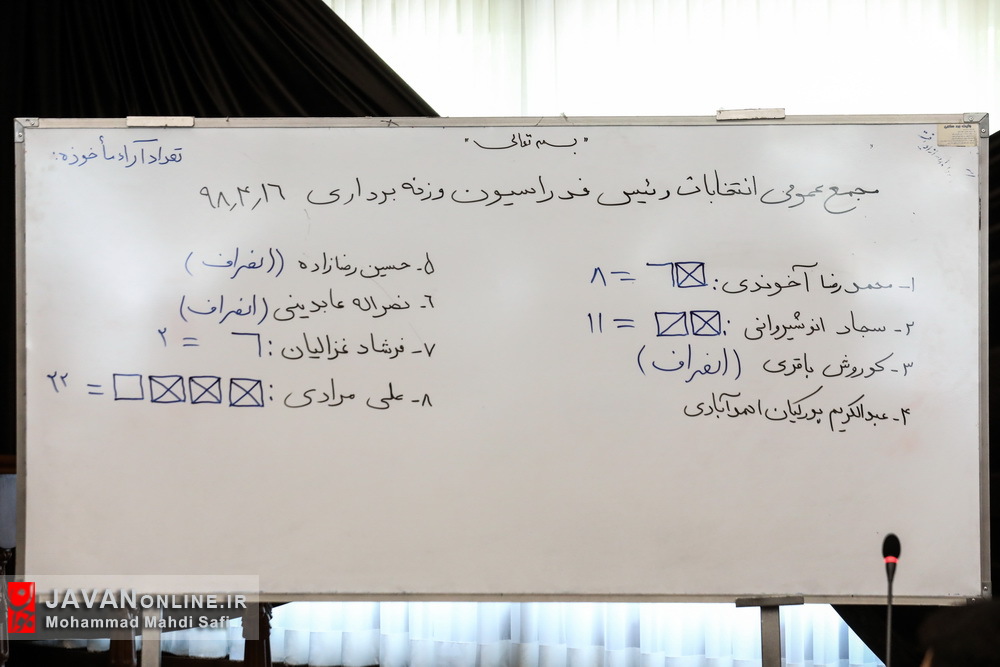 "بسمه تعالی"
تعداد آراء مأخوذه:
مجمع عمومی انتخابات رئیس فدراسیون وزنه برداری ۹۸٫۴٫۱۶
۱- محمدرضا آخوندی: = ۸
۲- سجاد انوشیروانی: = ۱۱
۳- کوروش باقری (انصراف)
۴- عبدالکریم پورکیان احمدآبادی
۵- حسین رضازاده (انصراف)
۶- نصراله عابدینی (انصراف)
۷- فرشاد غزالیان: = ۲
۸- علی مرادی: = ۲۲
JAVANONLINE.IR
Mohammad Mahdi Safi